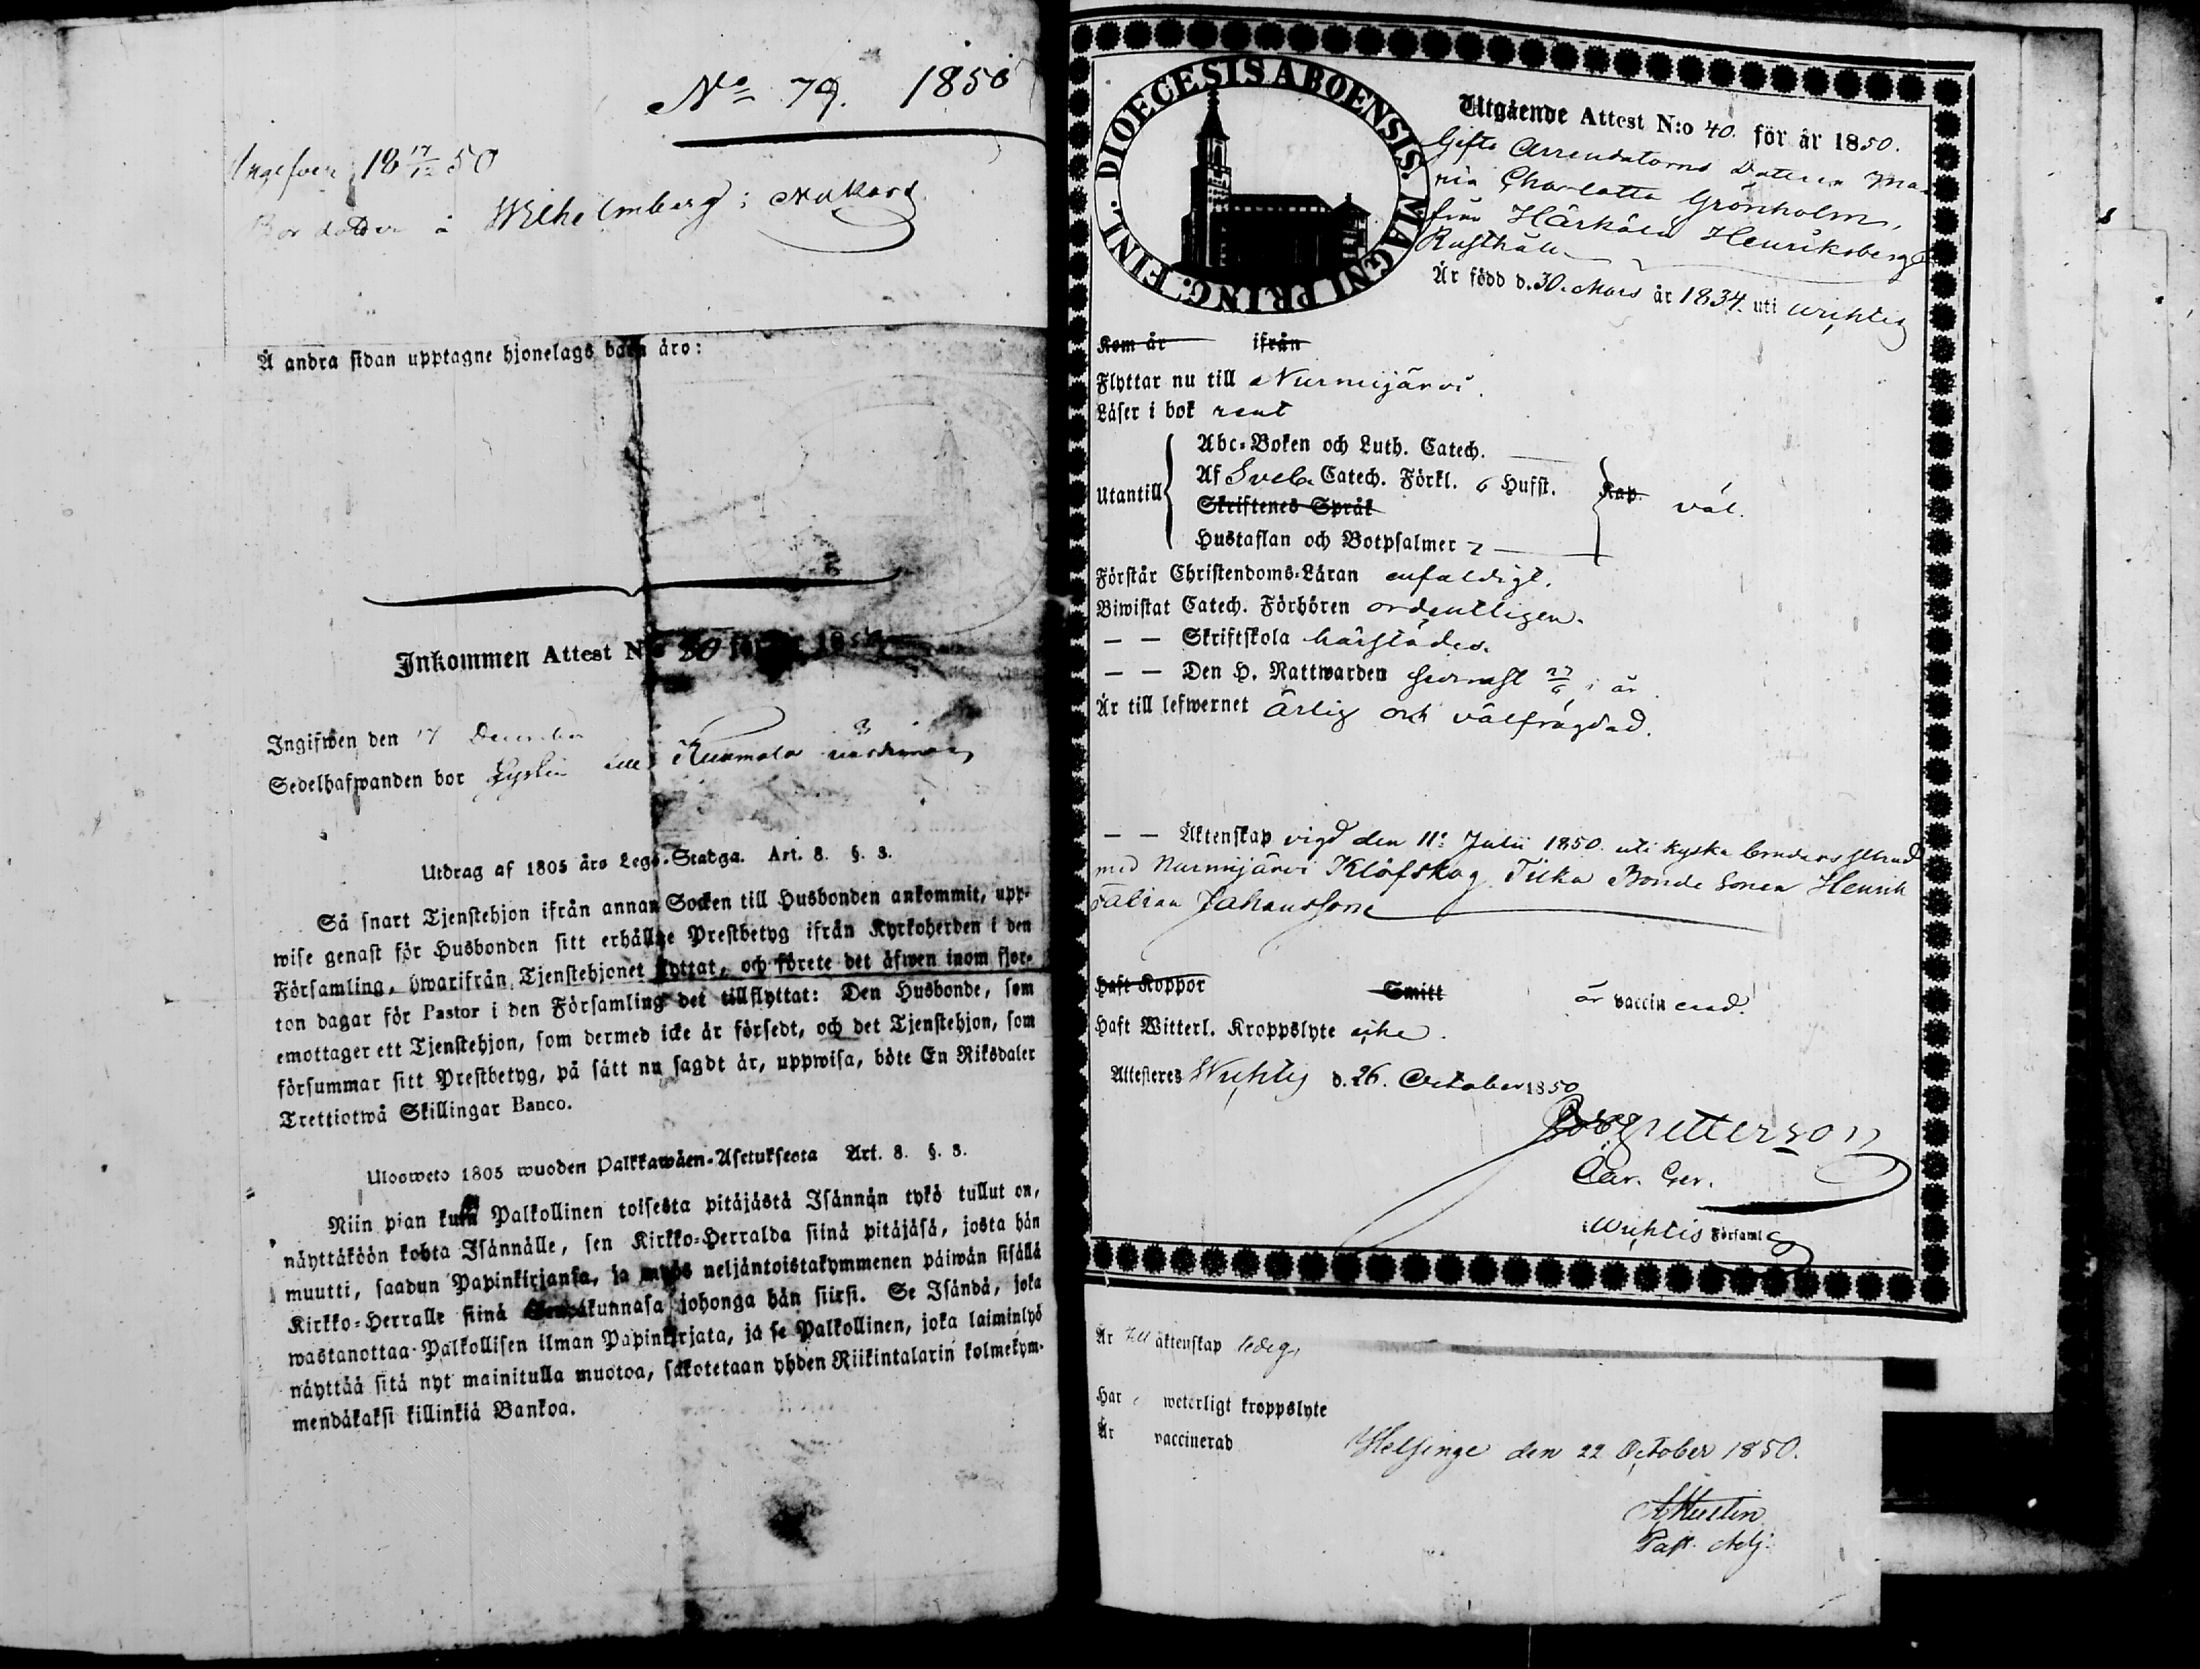 No 79. 1850
Ingifven 18 17/12 50
Bor å Wilhelmberg i Nukari
Å andra sidan upptagne hjonelags barn äro:
Inkommen Attest N:o 80 för år 1850
Ingifwen den 17 December
Sedelhafwanden bor
Utdrag af 1805 års Lego-Stadga. Art. 8. §. 3.
Så snart Tjenstehjon ifrån annan Socken till Husbonden ankommit, upp-
wise genast för Husbonden sitt erhållne Prestbetyg ifrån Kyrkoherden i den
Församling, hwarifrån Tjenstehjonet flyttat, och förete det äfwen inom fjor-
ton dagar för Pastor i den Församling det tillflyttat: Den Husbonde, som
emottager ett Tjenstehjon, som dermed icke är försedt, och det Tjenstehjon, som
försummar sitt Prestbetyg, på sätt nu sagdt är, uppwisa, böte En Riksdaler
Trettiotwå Skillingar Banco.
Ulosweto 1805 wuoden Palkkawäen-Asetuksesta Art. 8. §. 3.
Niin pian kuin Palkollinen toisesta pitäjästä Isännän tykö tullut on,
näyttäköön kohta Isännälle, sen Kirkko-Herralda siinä pitäjäsä, josta hän
muutti, saadun Papinkirjansa, ja myös neljäntoistakymmenen päiwän sisällä
Kirkko-Herralle siinä Seurakunnasa johonga hän siirsi. Se Isändä, joka
wastanottaa Palkollisen ilman Papinkirjata, ja se Palkollinen, joka laiminlyö
näyttää sitä nyt mainitulla muotoa, sakotetaan yhden Riikintalarin kolmekym-
mendäkaksi killinkiä Bankoa.
DIOECESIS ABOENSIS. MAGNI PRINC. FINL.
Utgående Attest N:o 40. för år 1850.
Gifta Arrendatorns Dottren Ma-
ria Charlotta Grönholm,
från Härkälä Henriksberg
Rusthåll
Är född d. 30. Mars år 1834. uti Wichtis
Kom år ifrån
Flyttar nu till Nurmijärvi.
Läser i bok rent
Utantill
Abc-Boken och Luth. Catech.
Af Sveb. Catech. Förkl. 6 Hufst. Kap. väl.
Skriftenes Språk
Hustaflan och Botpsalmer 2
Förstår Christendoms-Läran enfaldigt.
Biwistat Catech. Förhören ordentligen.
— — Skriftskola härstädes.
— — Den H. Nattwarden senast 27/6 i år.
Är till lefwernet ärlig och välfrägdad.
— — Äktenskap vigd den 11: Julii 1850. uti kyska brudars stånd
med Nurmijärvi Klöfskog Tilka Bonde Sonen Henrik
Fabian Johansson
Haft Koppor Smitt är vaccinerad.
Haft Witterl. Kroppslyte icke.
Attesteras Wichtis d. 26. October 1850
Petterson
Wichtis Församl
Är till äktenskap ledig,
Har weterligt kroppslyte
Är vaccinerad
Helsinge den 22 October 1850.
Past. Adj.